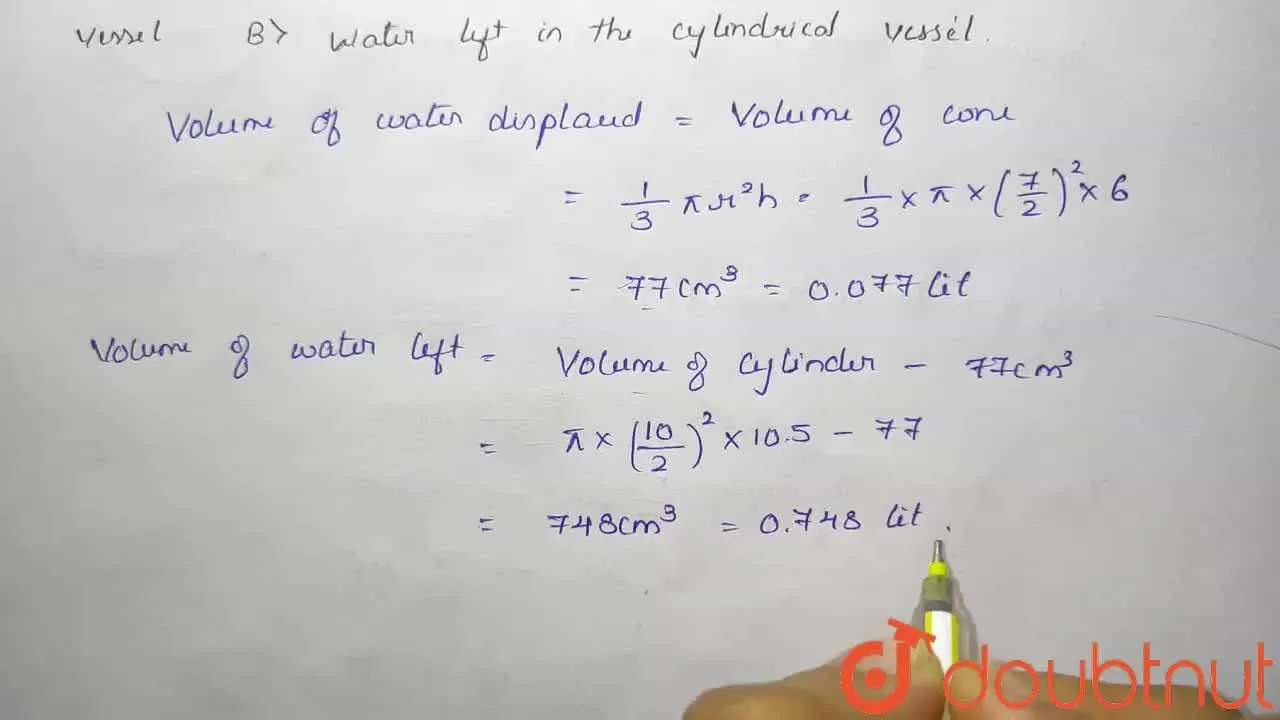 vessel B> Water left in the cylindrical vessel.
Volume of water displaud = Volume of cone
= 1/3 π r²h = 1/3 × π × (7/2)² × 6
= 77cm³ = 0.077 lit
Volume of water left = Volume of cylinder – 77cm³
= π × (10/2)² × 10.5 – 77
= 748cm³ = 0.748 lit.
doubtnut